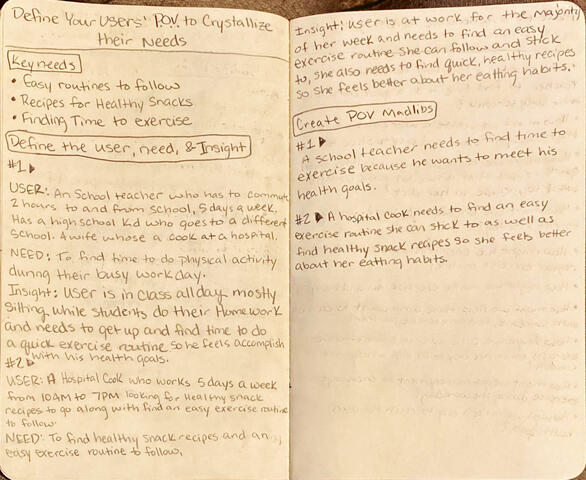 Define Your Users' POV to Crystallize
their Needs
Key needs
• Easy routines to follow
• Recipes for Healthy Snacks
• Finding Time to exercise
Define the user, need, & Insight
#1
USER: An School teacher who has to commute
2 hours to and from school, 5 days a week.
Has a highschool kid who goes to a different
School. A wife whose a cook at a hospital.
NEED: To find time to do physical activity
during their busy work day.
Insight: User is in class all day mostly
Sitting while students do their Homework
and needs to get up and find time to do
a quick exercise routine so he feels accomplish
with his health goals.
#2
USER: A Hospital Cook who works 5 days a week
from 10AM to 7PM looking for Healthy snack
recipes to go along with find an easy exercise routine
to follow
NEED: To find healthy snack recipes and an
easy exercise routine to follow.
Insight: User is at work for the majority
of her week and needs to find an easy
exercise routine she can follow and stick
to, she also needs to find quick, healthy recipes
so she feels better about her eatting habits.
Create POV Madlibs
#1
A school teacher needs to find time to
exercise because he wants to meet his
health goals.
#2 A hospital Cook needs to find an easy
exercise routine she can stick to as well as
find healthy snack recipes so she feels better
about her eatting habits.